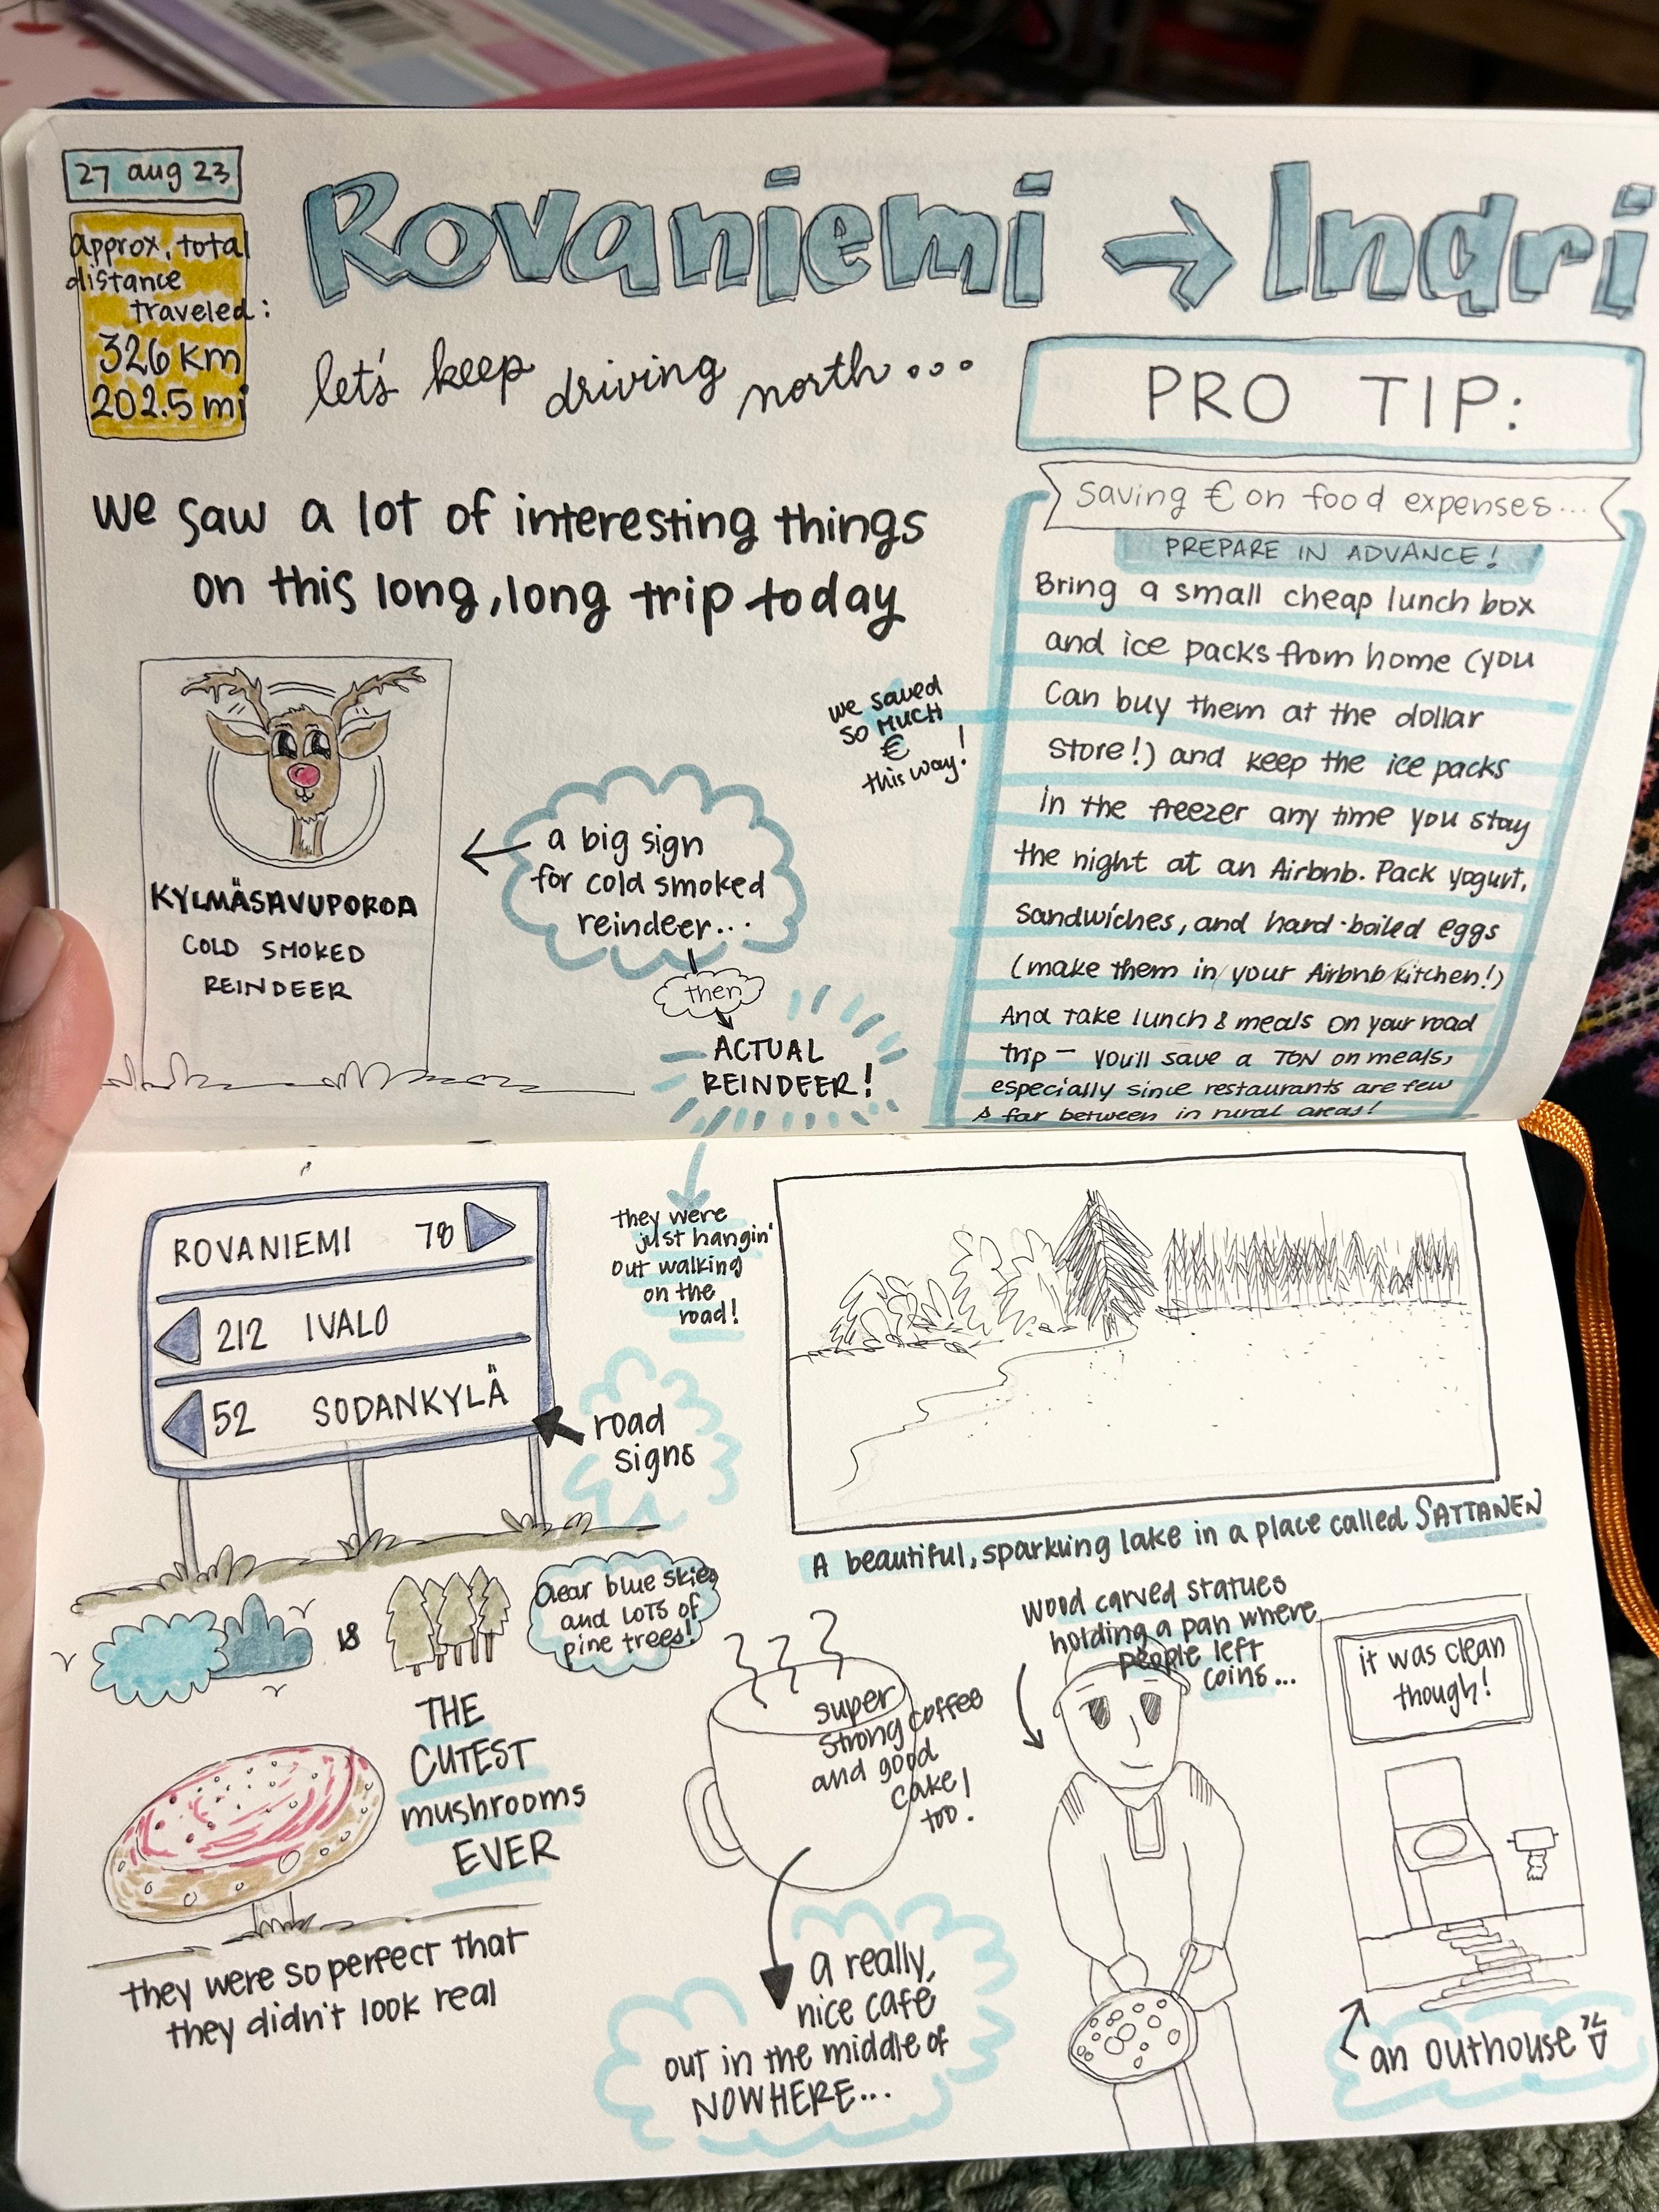 27 aug 23
approx. total
distance
traveled:
326 km
202.5 mi
Rovaniemi → Inari
let's keep driving north...
we saw a lot of interesting things
on this long, long trip today
KYLMÄSAVUPOROA
COLD SMOKED
REINDEER
a big sign
for cold smoked
reindeer...
then
ACTUAL
REINDEER!
we saved
SO MUCH
€
this way!
PRO TIP:
Saving € on food expenses...
PREPARE IN ADVANCE!
Bring a small cheap lunch box
and ice packs from home (you
can buy them at the dollar
store!) and keep the ice packs
in the freezer any time you stay
the night at an Airbnb. Pack yogurt,
sandwiches, and hard-boiled eggs
(make them in your Airbnb kitchen!)
And take lunch & meals on your road
trip - you'll save a TON on meals,
especially since restaurants are few
& far between in rural areas!
ROVANIEMI 78
212 IVALO
52 SODANKYLÄ
road
signs
they were
just hangin'
out walking
on the
road!
A beautiful, sparkling lake in a place called SATTANEN
Clear blue skies
and LOTS of
pine trees!
THE
CUTEST
mushrooms
EVER
they were so perfect that
they didn't look real
super
strong coffee
and good
cake!
too.
a really,
nice café
out in the middle of
NOWHERE...
wood carved statues
holding a pan where
people left
coins...
it was clean
though!
an outhouse